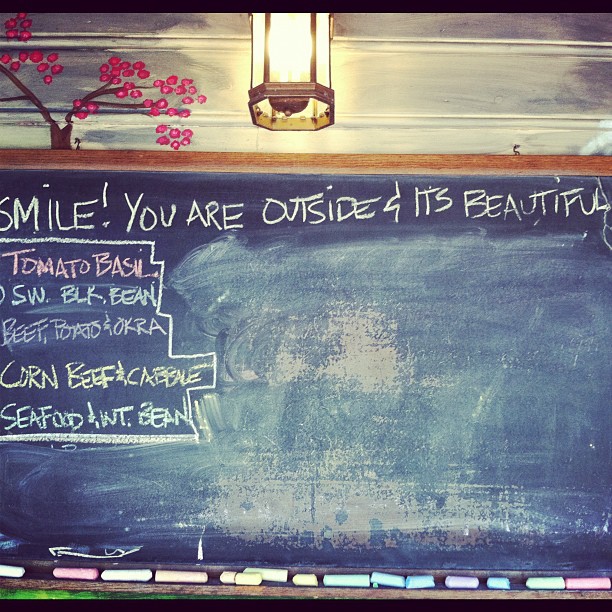 SMILE! YOU ARE OUTSIDE & ITS BEAUTIFUL
TOMATO BASIL
SW. BLK. BEAN
BEEF, POTATO & OKRA
CORN BEEF & CABBAGE
SEAFOOD & WT. BEAN